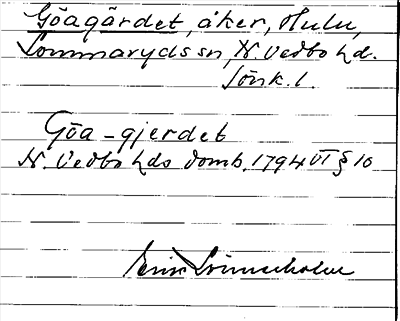 Göagärdet, åker, Hulu,
Sommaryds sn, N. Vedbo hd.
Jönk. l.
Göa-gjerdet
N. Vedbo hds domb. 1794 VI § 10
Erik